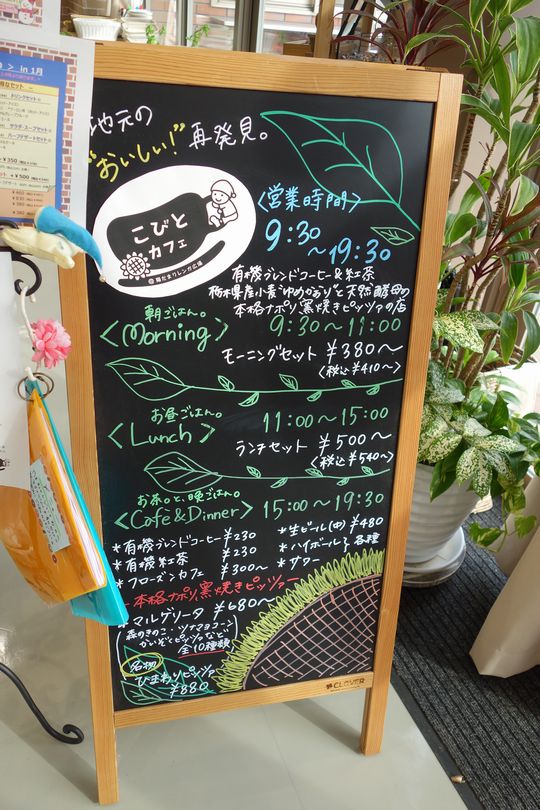 地元の
"おいしい!" 再発見。
こびと
カフェ
@陽だまりレンガ広場
〈営業時間〉
9:30
~19:30
有機ブレンドコーヒー&紅茶
栃木県産小麦"ゆめかおり"と天然酵母の
本格ナポリ窯焼きピッツァの店
朝ごはん。
<Morning>
9:30~11:00
モーニングセット ¥380~
(税込¥410~)
お昼ごはん。
<Lunch>
11:00~15:00
ランチセット ¥500~
(税込¥540~)
お茶。と、晩ごはん。
<Cafe&Dinner>
15:00~19:30
*有機ブレンドコーヒー¥230
*有機紅茶 ¥230
*フローズンカフェ ¥300~
*生ビール(中)¥480
*ハイボール 各種
*サワー
-本格ナポリ窯焼きピッツァ-
マルゲリータ ¥680~
(森のきのこ・ツナマヨコーン
かいぞくピッツァなど
全10種類)
名物
ひまわりピッツァ
¥880
CLOVER
in 1月